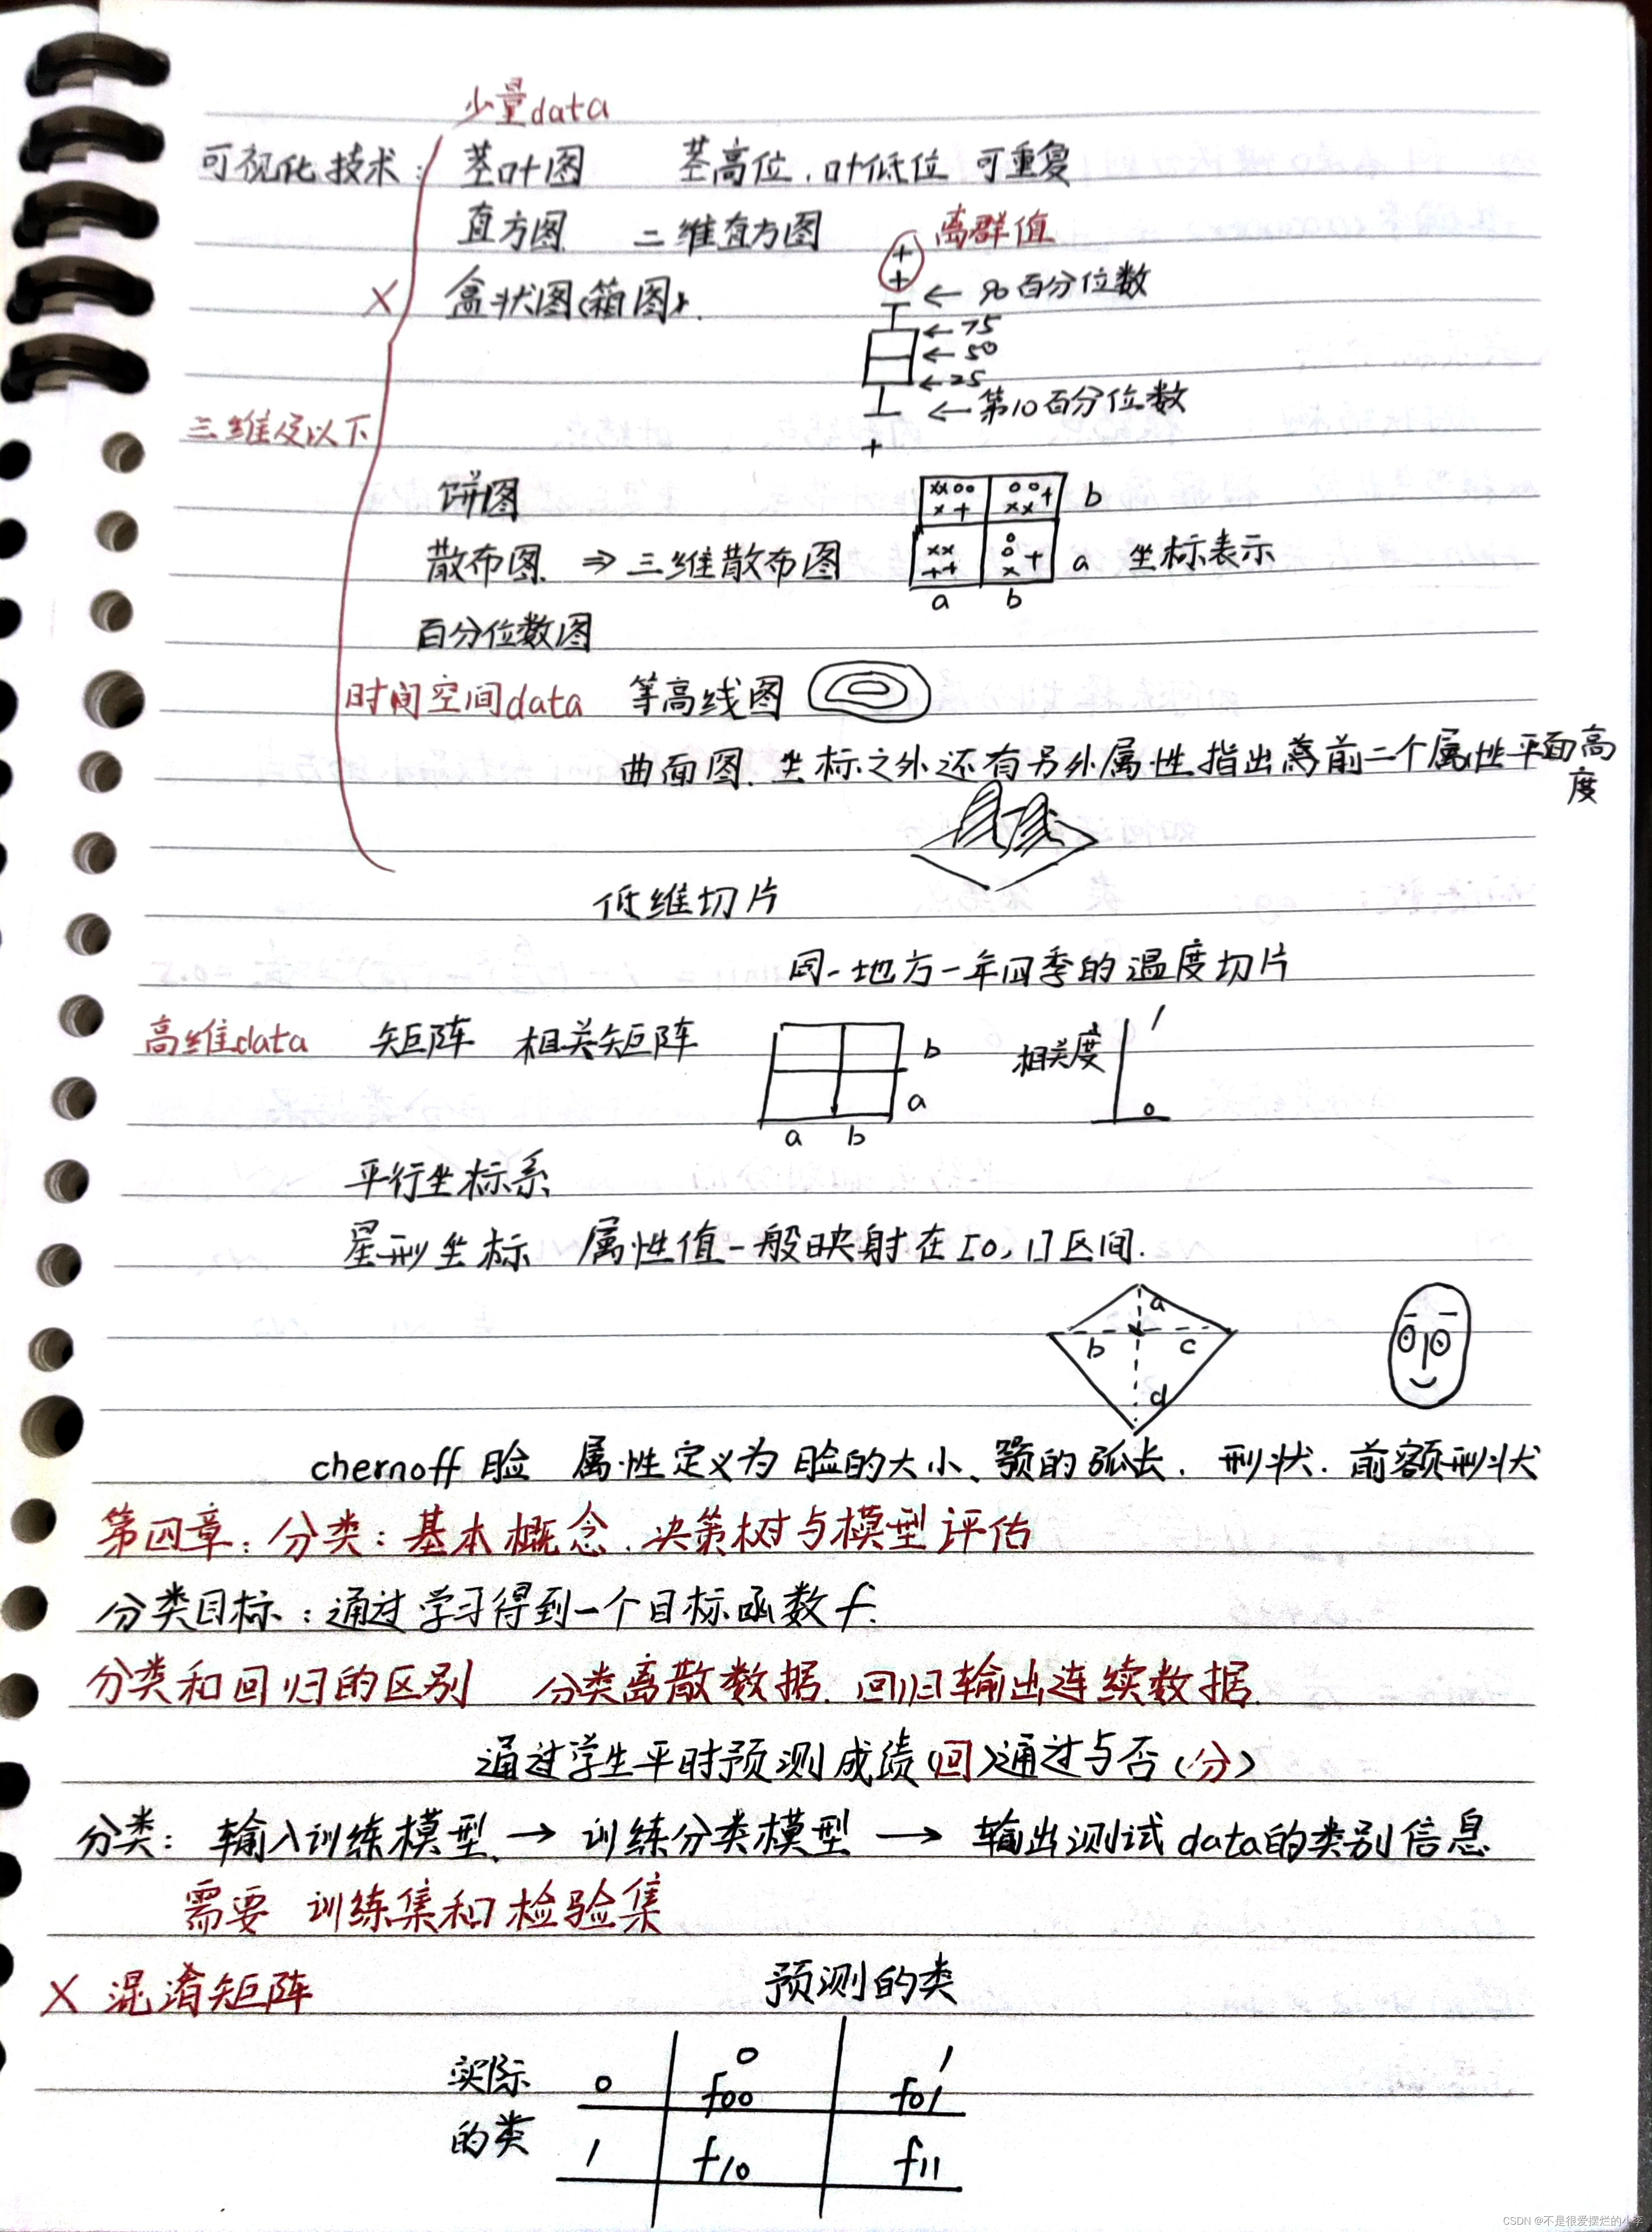 少量data
可视化技术: 茎叶图 茎高位,叶低位 可重复
直方图 二维直方图 离群值
+
+
X 盒状图(箱图). ← 90百分位数
←75
←50
←25
← 第10百分位数
三维及以下
+
饼图 xx00 00+ b
x+ xx
散布图 ⇒ 三维散布图 xx 0 a 坐标表示
++ 0+
x
a b
百分位数图
时间空间data 等高线图
曲面图.坐标之外还有另外属性指出高前二个属性平面高
度
低维切片
同一地方一年四季的温度切片
高维data 矩阵 相关矩阵 b 相关度 1
a 0
a b
平行坐标系
星形坐标 属性值一般映射在[0,1]区间.
a
b c
d
chernoff脸 属性定义为脸的大小、颚的弧长.形状.前额形状
第四章:分类:基本概念.决策树与模型评估
分类目标:通过学习得到一个目标函数f.
分类和回归的区别 分类离散数据.回归输出连续数据.
通过学生平时预测成绩(回)通过与否(分)
分类: 输入训练模型.→训练分类模型→输出测试data的类别信息
需要 训练集和检验集
X 混淆矩阵 预测的类
0 1
实际 0 f00 f01
的类 1 f10 f11
CSDN @不是很爱摆烂的小李